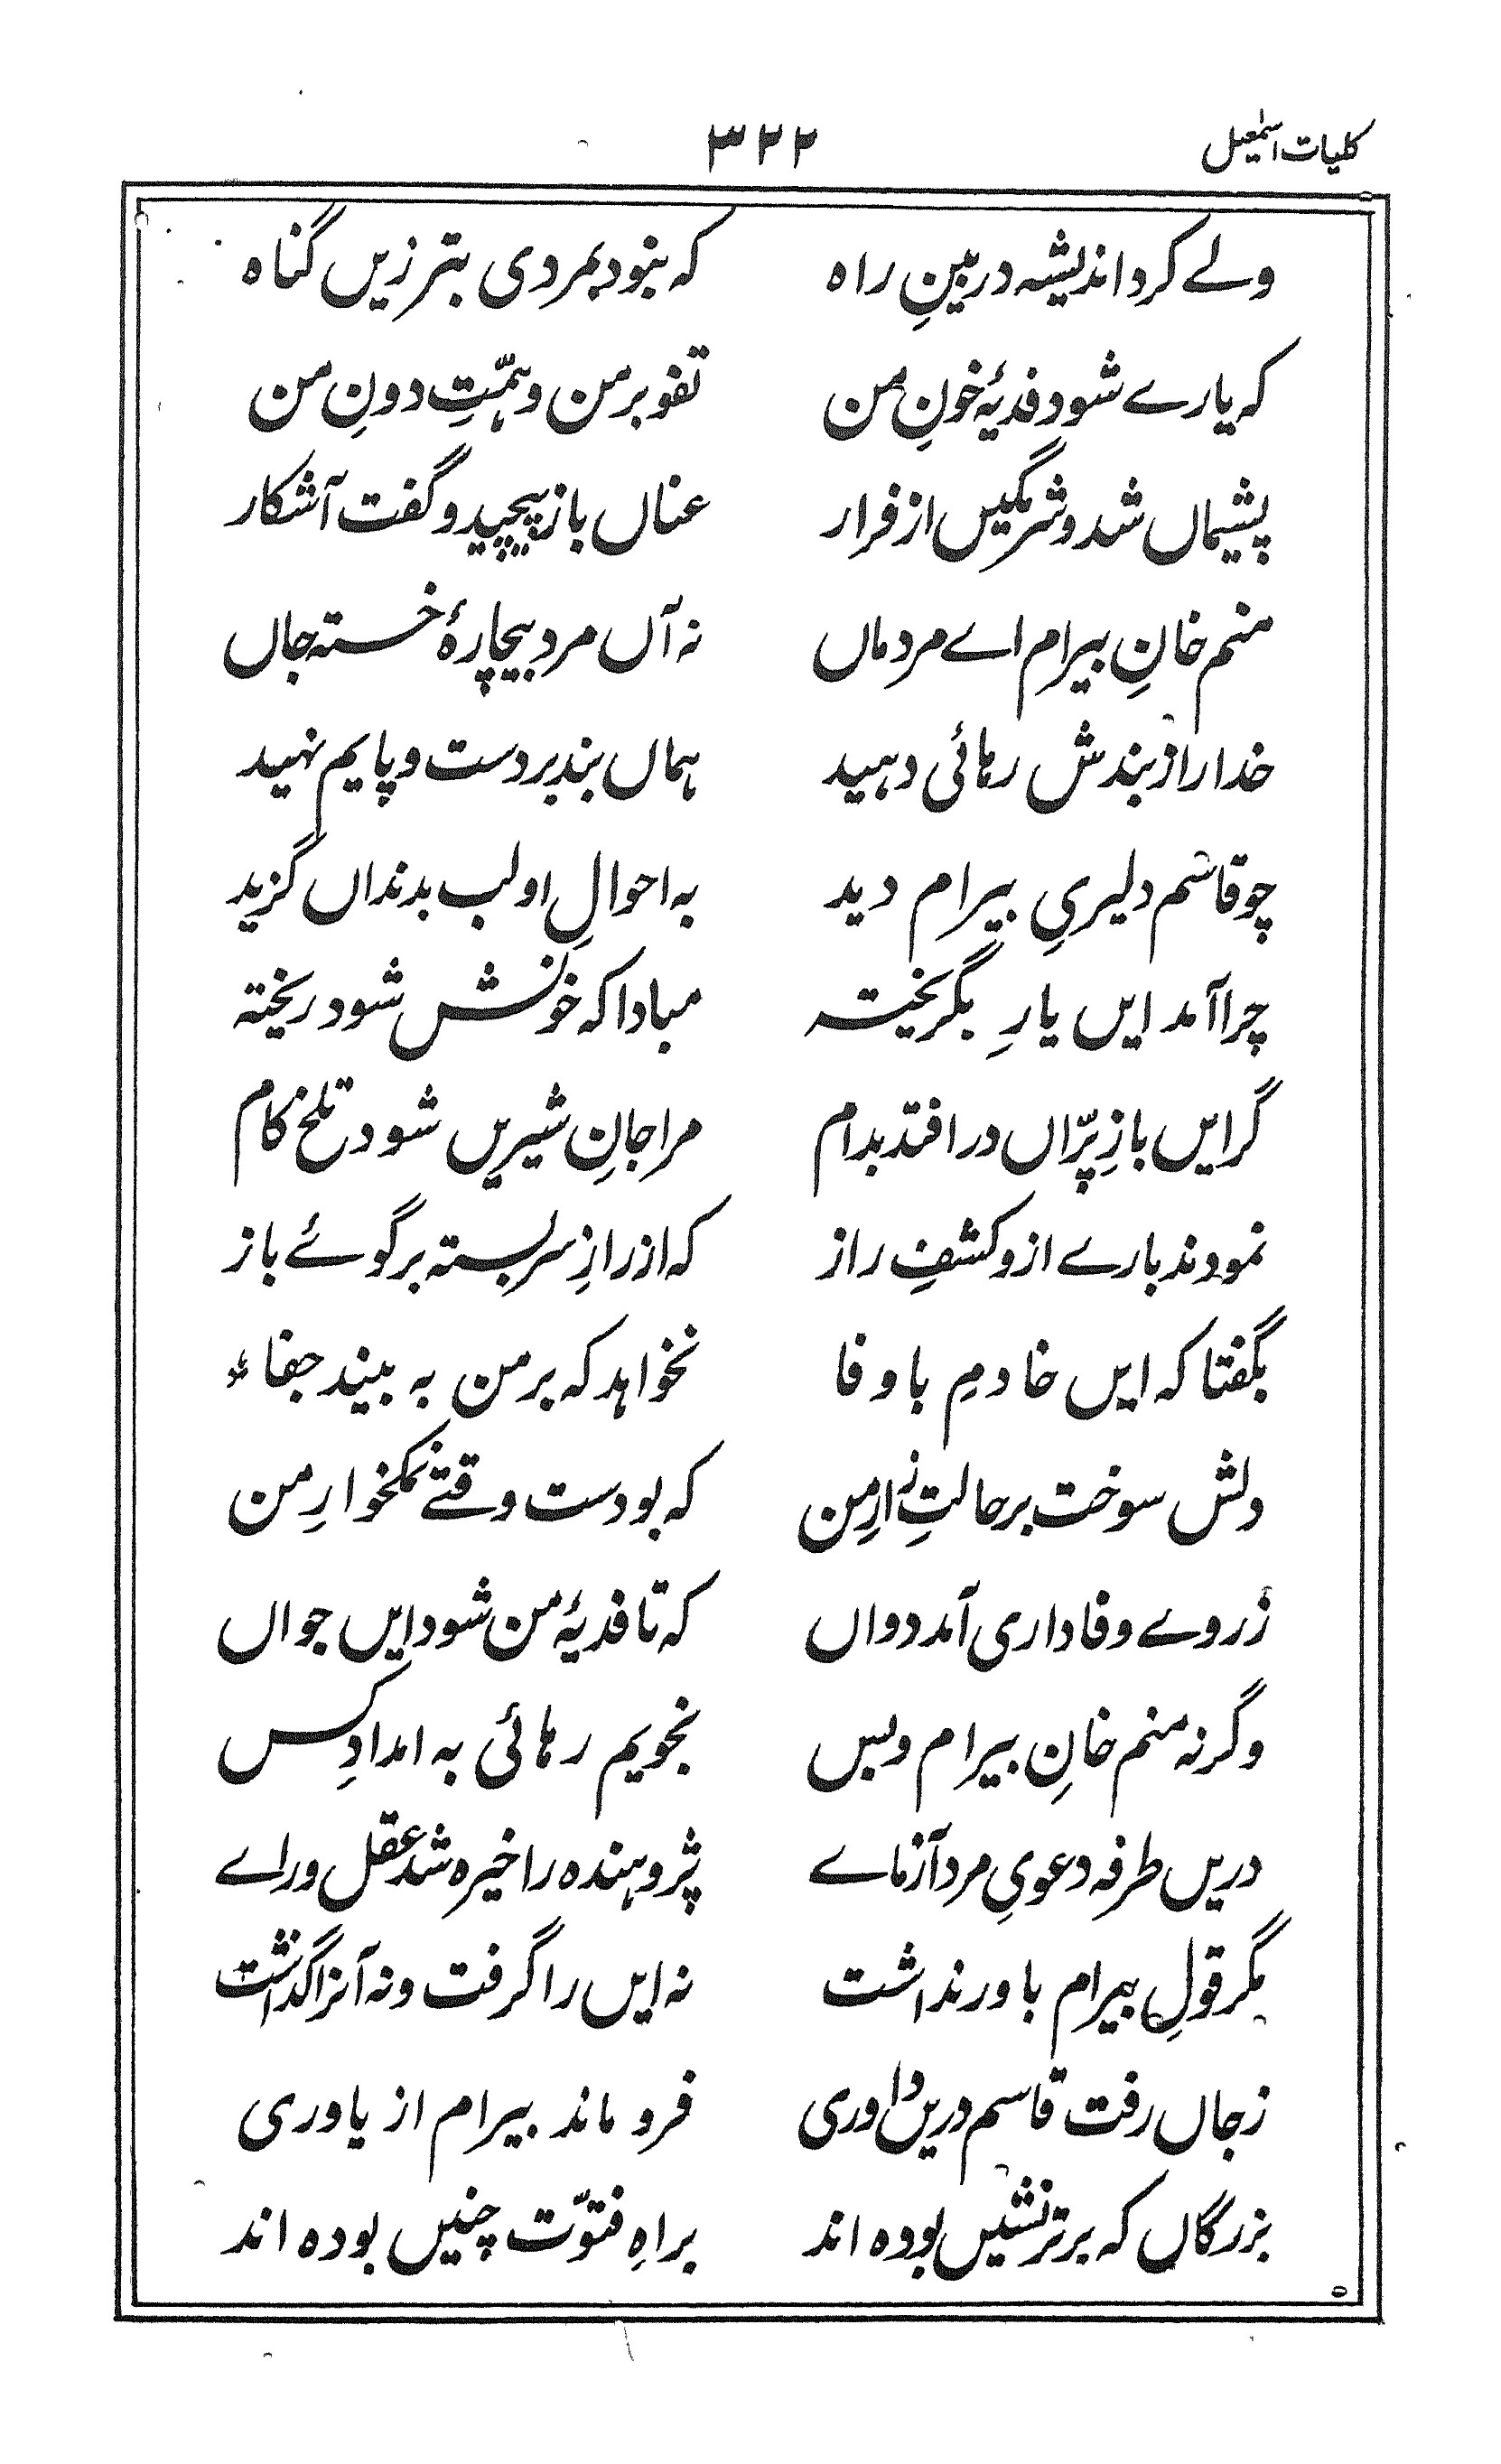 کلیات اسمٰعیل ۳۲۲
ولے کرد اندیشہ در بینِ راہ کہ نبود بمردی بتر زیں گناہ
کہ یارے شود فدیۂ خونِ من تفو بر من و ہمّتِ دونِ من
پشیماں شد و شرمگیں از فرار عناں باز پیچید و گفت آشکار
منم خانِ بیرام اے مردماں نہ آں مرد بیچارۂ خستہ جاں
خدارا از بندش رہائی دہید ہماں بند بر دست و پایم نہید
چو قاسم دلیریِ بیرام دید بہ احوالِ او لب بدنداں گزید
چرا آمد ایں یارِ بگریختہ مبادا کہ خونش شود ریختہ
گر ایں بازِ پرّاں در افتد بدام مرا جانِ شیریں شود تلخ کام
نمودند بارے ازو کشفِ راز کہ از رازِ سر بستہ بر گوئے باز
بگفتا کہ ایں خادمِ با وفا نخواہد کہ بر من بہ بیند جفاء
دلش سوخت بر حالتِ زارِ من کہ بودست وقتے نمکخوارِ من
ز روے وفاداری آمد دواں کہ تا فدیۂ من شود ایں جواں
وگرنہ منم خانِ بیرام و بس نجویم رہائی بہ امدادِ کس
دریں طرفہ دعویِ مرد آزماے پژوہندہ را خیرہ شد عقل و راے
مگر قولِ بیرام باور نداشت نہ ایں را گرفت و نہ آنرا گذاشت
ز جاں رفت قاسم دریں داوری فرو ماند بیرام از یاوری
بزرگاں کہ برتر نشیں بودہ اند براہِ فتوّت چنیں بودہ اند